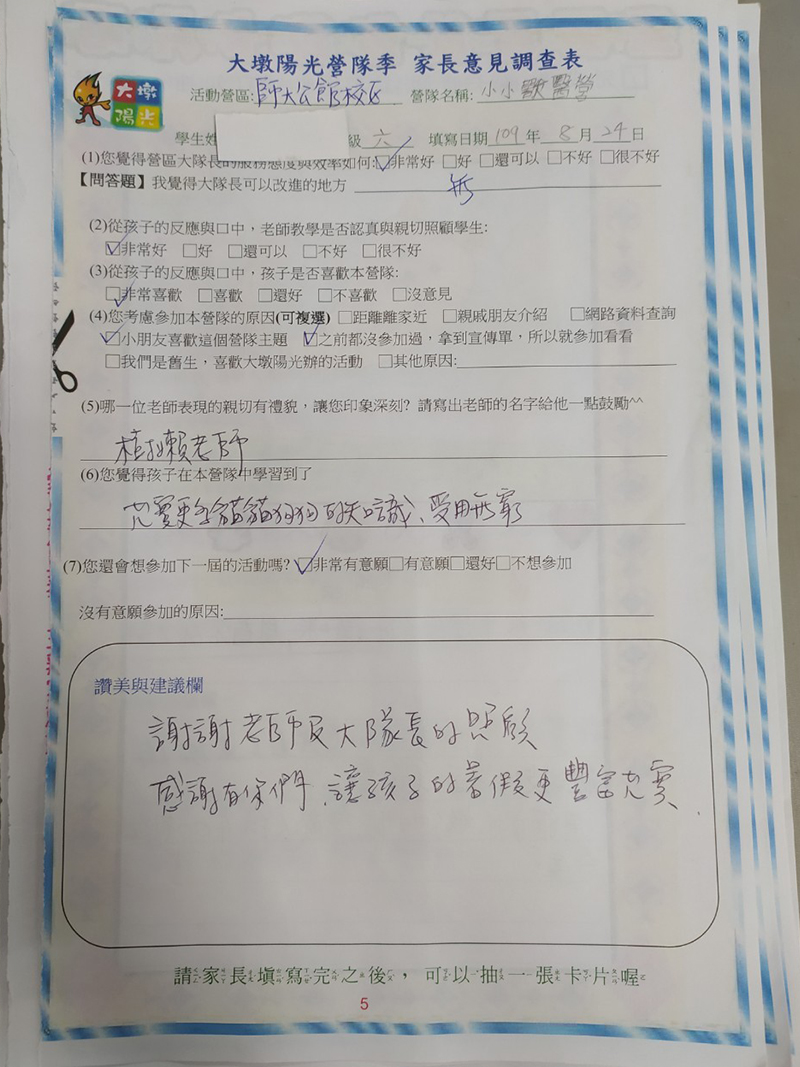 大墩陽光營隊季 家長意見調查表
大墩
陽光
活動營區:師大公館校區 營隊名稱:小小獸醫營
學生姓 級 六 填寫日期 109 年 8 月 24 日
(1)您覺得營區大隊長的服務態度與效率如何:☑非常好 □好 □還可以 □不好 □很不好
【問答題】我覺得大隊長可以改進的地方 無
(2)從孩子的反應與口中，老師教學是否認真與親切照顧學生:
☑非常好 □好 □還可以 □不好 □很不好
(3)從孩子的反應與口中，孩子是否喜歡本營隊:
☑非常喜歡 □喜歡 □還好 □不喜歡 □沒意見
(4)您考慮參加本營隊的原因(可複選) □距離離家近 □親戚朋友介紹 □網路資料查詢
☑小朋友喜歡這個營隊主題 ☑之前都沒參加過，拿到宣傳單，所以就參加看看
□我們是舊生，喜歡大墩陽光辦的活動 □其他原因:
(5)哪一位老師表現的親切有禮貌，讓您印象深刻? 請寫出老師的名字給他一點鼓勵^^
樹懶老師
(6)您覺得孩子在本營隊中學習到了
充實更多貓貓狗狗的知識、受用無窮
(7)您還會想參加下一屆的活動嗎? ☑非常有意願□有意願□還好□不想參加
沒有意願參加的原因:
讚美與建議欄
謝謝老師及大隊長的照顧
感謝有你們、讓孩子的暑假更豐富充實.
請家長填寫完之後，可以抽一張卡片喔
5